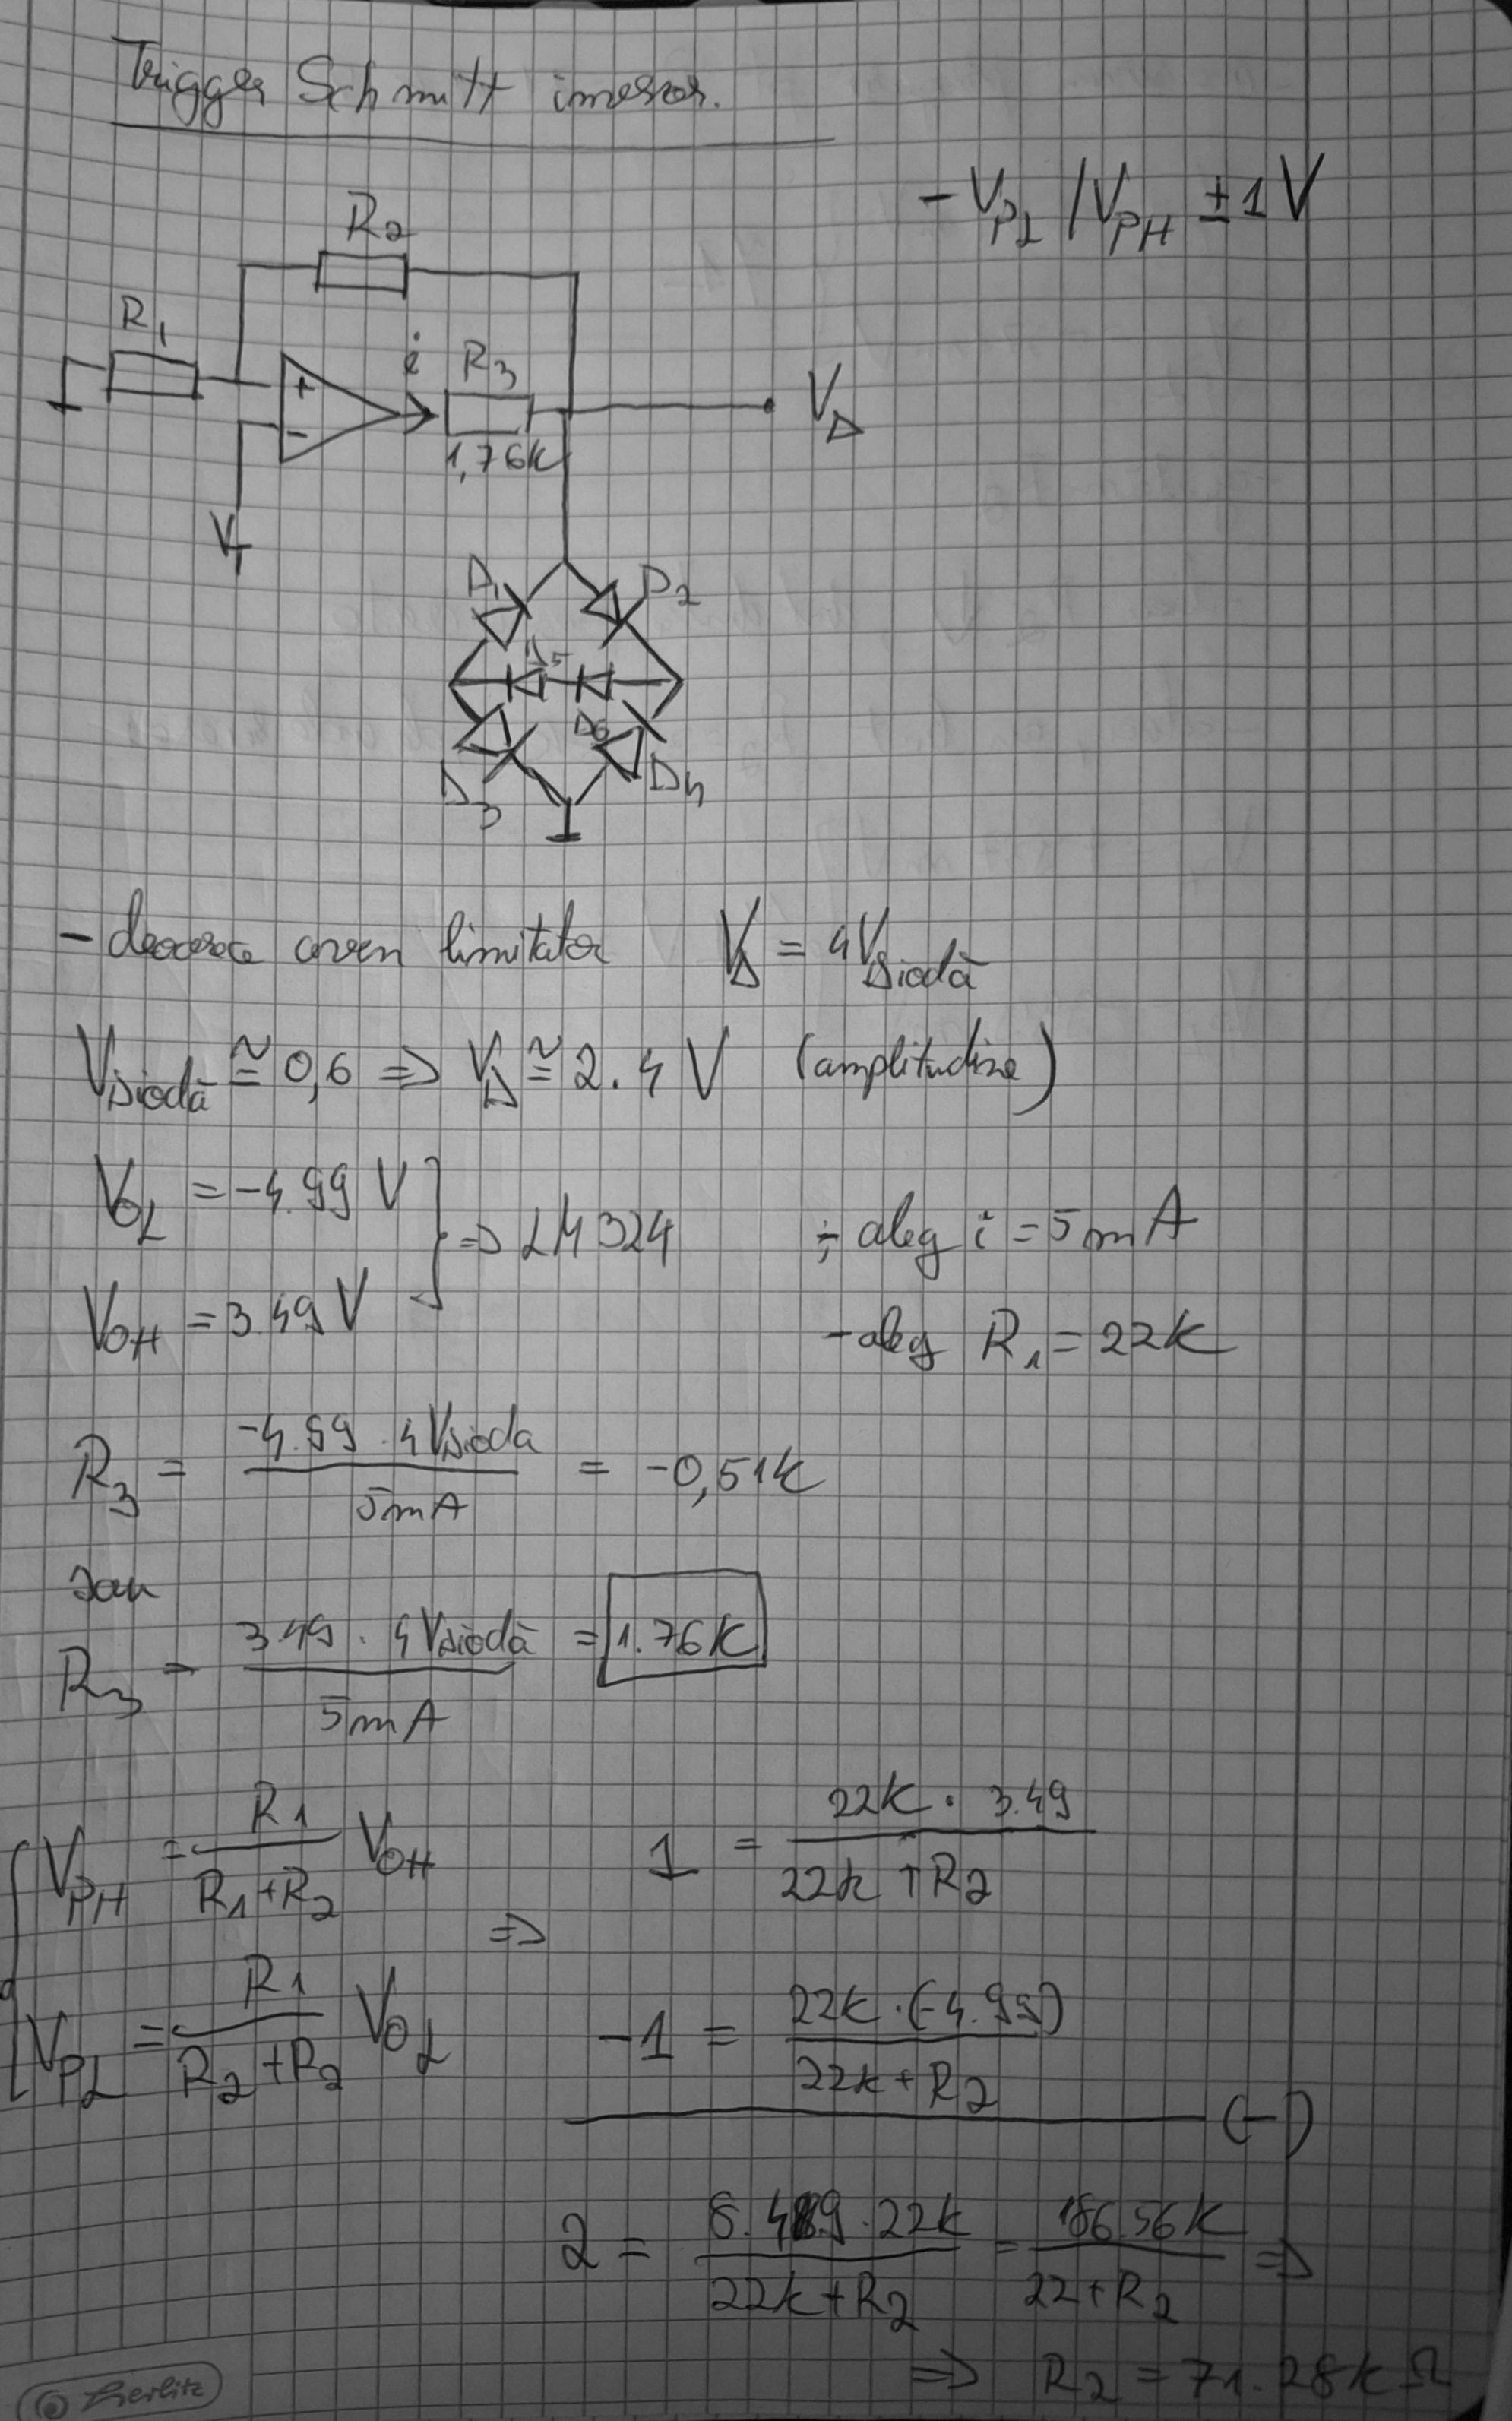 Trigger Schmitt inversor.
- V_PL / V_PH ± 1V
R2
R1
+
-
i
R3
1,76k
V_Δ
V_T
D1
D2
D5
D6
D3
D4
- deoarece aven limitator V_Δ = 4V_Diodă
V_Diodă ≅ 0,6 => V_Δ ≅ 2.4 V (amplitudine)
V_OL = -4.99 V
=> LM324
÷ aleg i = 5mA
V_OH = 3.49 V
- aleg R1 = 22k
R3 = (-4.99 · 4V_Dioda) / 5mA = -0,51k
sau
R3 = (3.49 · 4V_Diodă) / 5mA = 1.76k
V_PH = R1 / (R1+R2) V_OH
1 = (22k · 3.49) / (22k + R2)
=>
V_PL = R1 / (R2+R2) V_OL
-1 = (22k · (-4.99)) / (22k + R2)
(-)
2 = (8.489 · 22k) / (22k + R2) = 186.56k / (22 + R2) =>
=> R2 = 71.28kΩ
herlitz